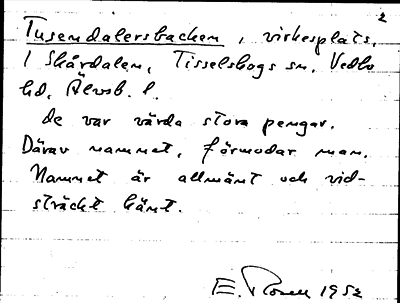 2
Tusendalersbacken, virkesplats,
I Skårdalen, Tisselskogs sn. Vedbo
hd, Älvsb. l.
de var värda stora pengar.
Därav namnet, förmodar man.
Namnet är allmänt och vid-
sträckt känt.
E. Rosell 1952